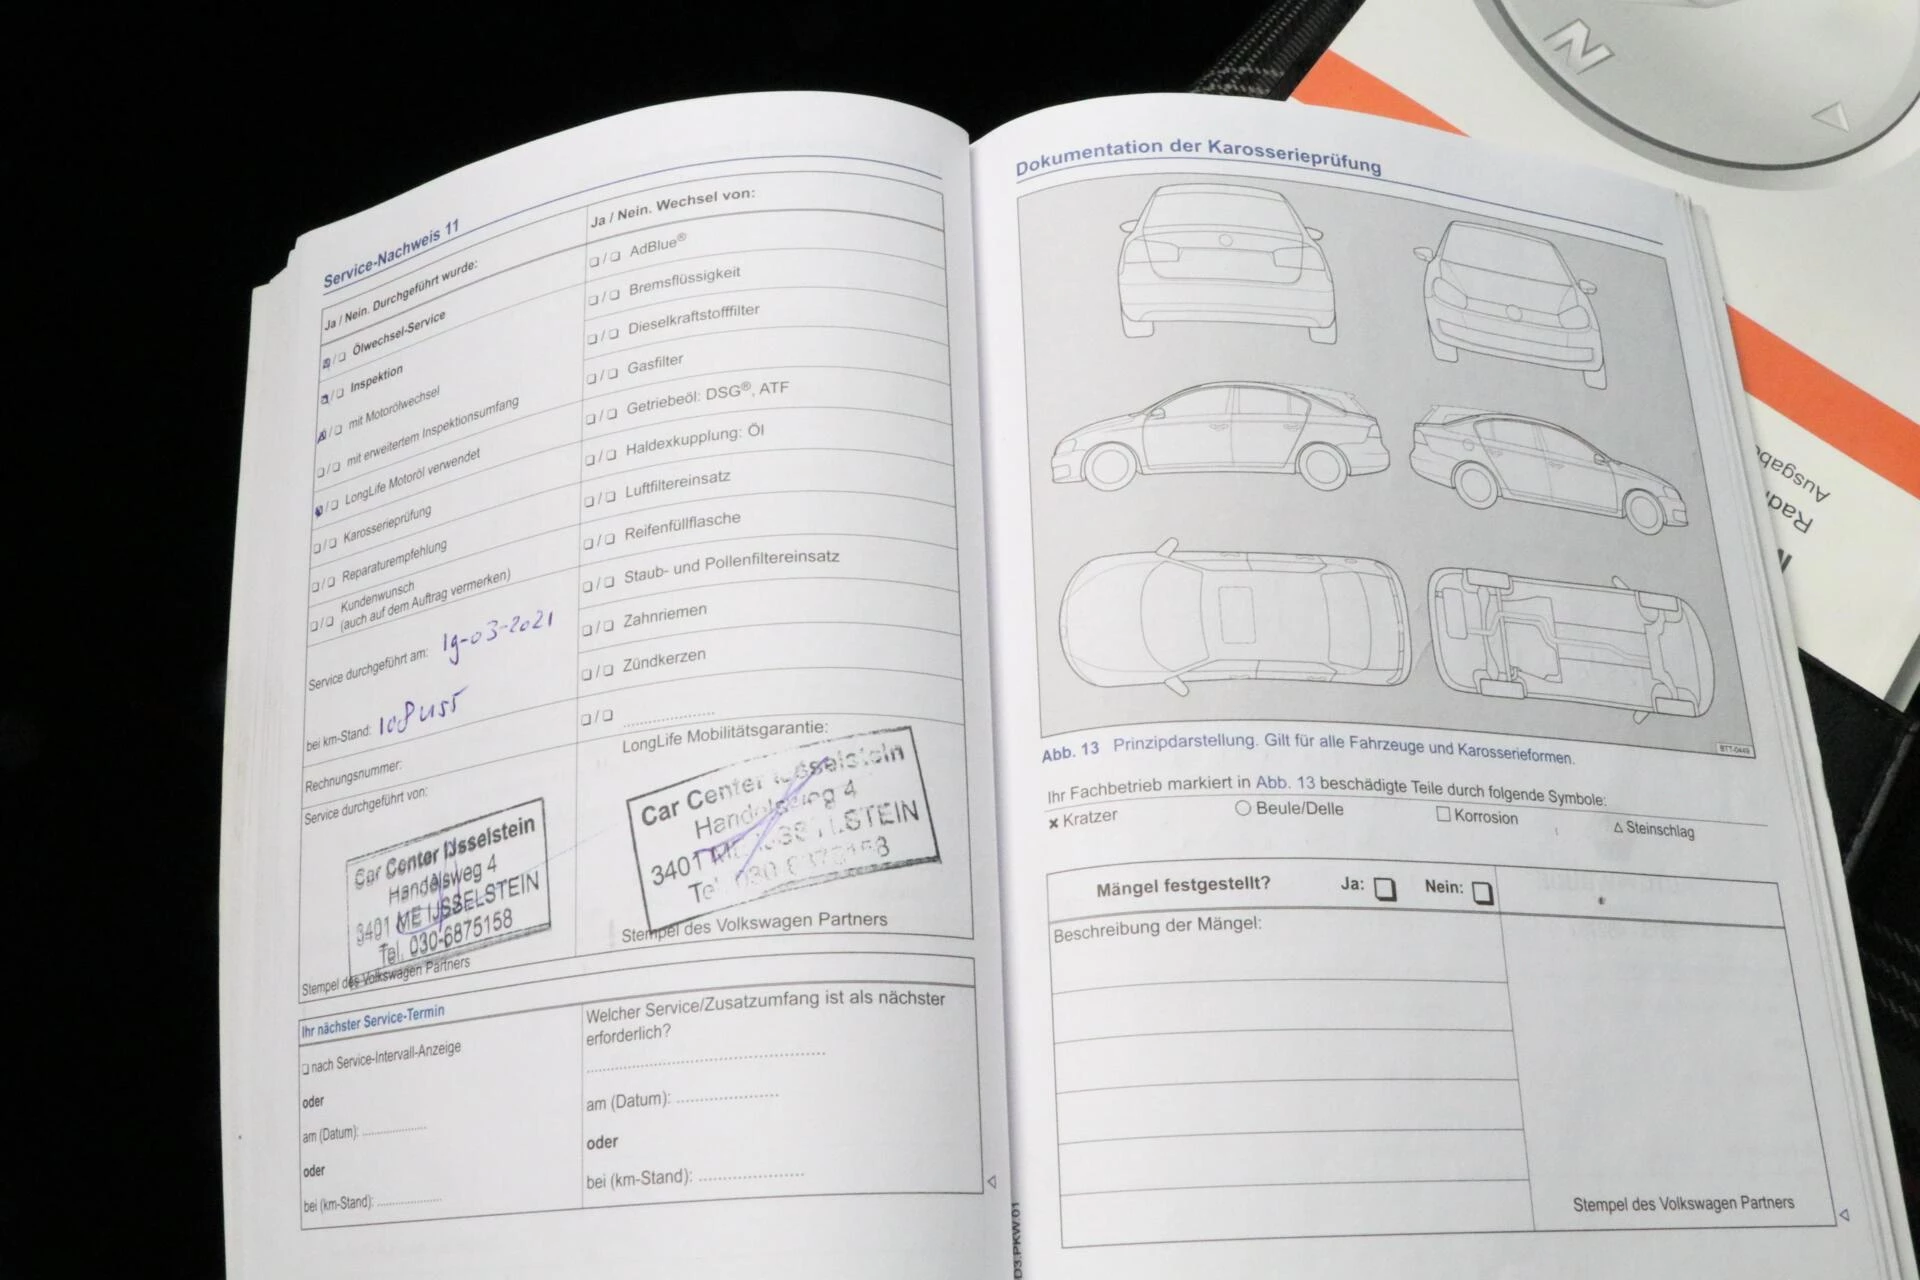 Service-Nachweis 11
Ja / Nein. Durchgeführt wurde:
Ölwechsel-Service
Inspektion
mit Motorölwechsel
mit erweitertem Inspektionsumfang
LongLife Motoröl verwendet
Karosserieprüfung
Reparaturempfehlung
Kundenwunsch
(auch auf dem Auftrag vermerken)
Service durchgeführt am: 19-03-2021
bei km-Stand: 108455
Rechnungsnummer:
Service durchgeführt von:
Car Center IJsselstein
Handelsweg 4
3401 ME IJSSELSTEIN
Tel. 030-6875158
Stempel des Volkswagen Partners
Ja / Nein. Wechsel von:
AdBlue®
Bremsflüssigkeit
Dieselkraftstofffilter
Gasfilter
Getriebeöl: DSG®, ATF
Haldexkupplung: Öl
Luftfiltereinsatz
Reifenfüllflasche
Staub- und Pollenfiltereinsatz
Zahnriemen
Zündkerzen
LongLife Mobilitätsgarantie:
Car Center IJsselstein
Handelsweg 4
3401 ME IJSSELSTEIN
Tel. 030-6875158
Stempel des Volkswagen Partners
Ihr nächster Service-Termin
nach Service-Intervall-Anzeige
oder
am (Datum):
oder
bei (km-Stand):
Welcher Service/Zusatzumfang ist als nächster
erforderlich?
am (Datum):
oder
bei (km-Stand):
Dokumentation der Karosserieprüfung
BTT-0449
Abb. 13 Prinzipdarstellung. Gilt für alle Fahrzeuge und Karosserieformen.
Ihr Fachbetrieb markiert in Abb. 13 beschädigte Teile durch folgende Symbole:
Kratzer Beule/Delle Korrosion Steinschlag
Mängel festgestellt? Ja: Nein:
Beschreibung der Mängel:
Stempel des Volkswagen Partners
D3.PKW.01
N
Ausgabe